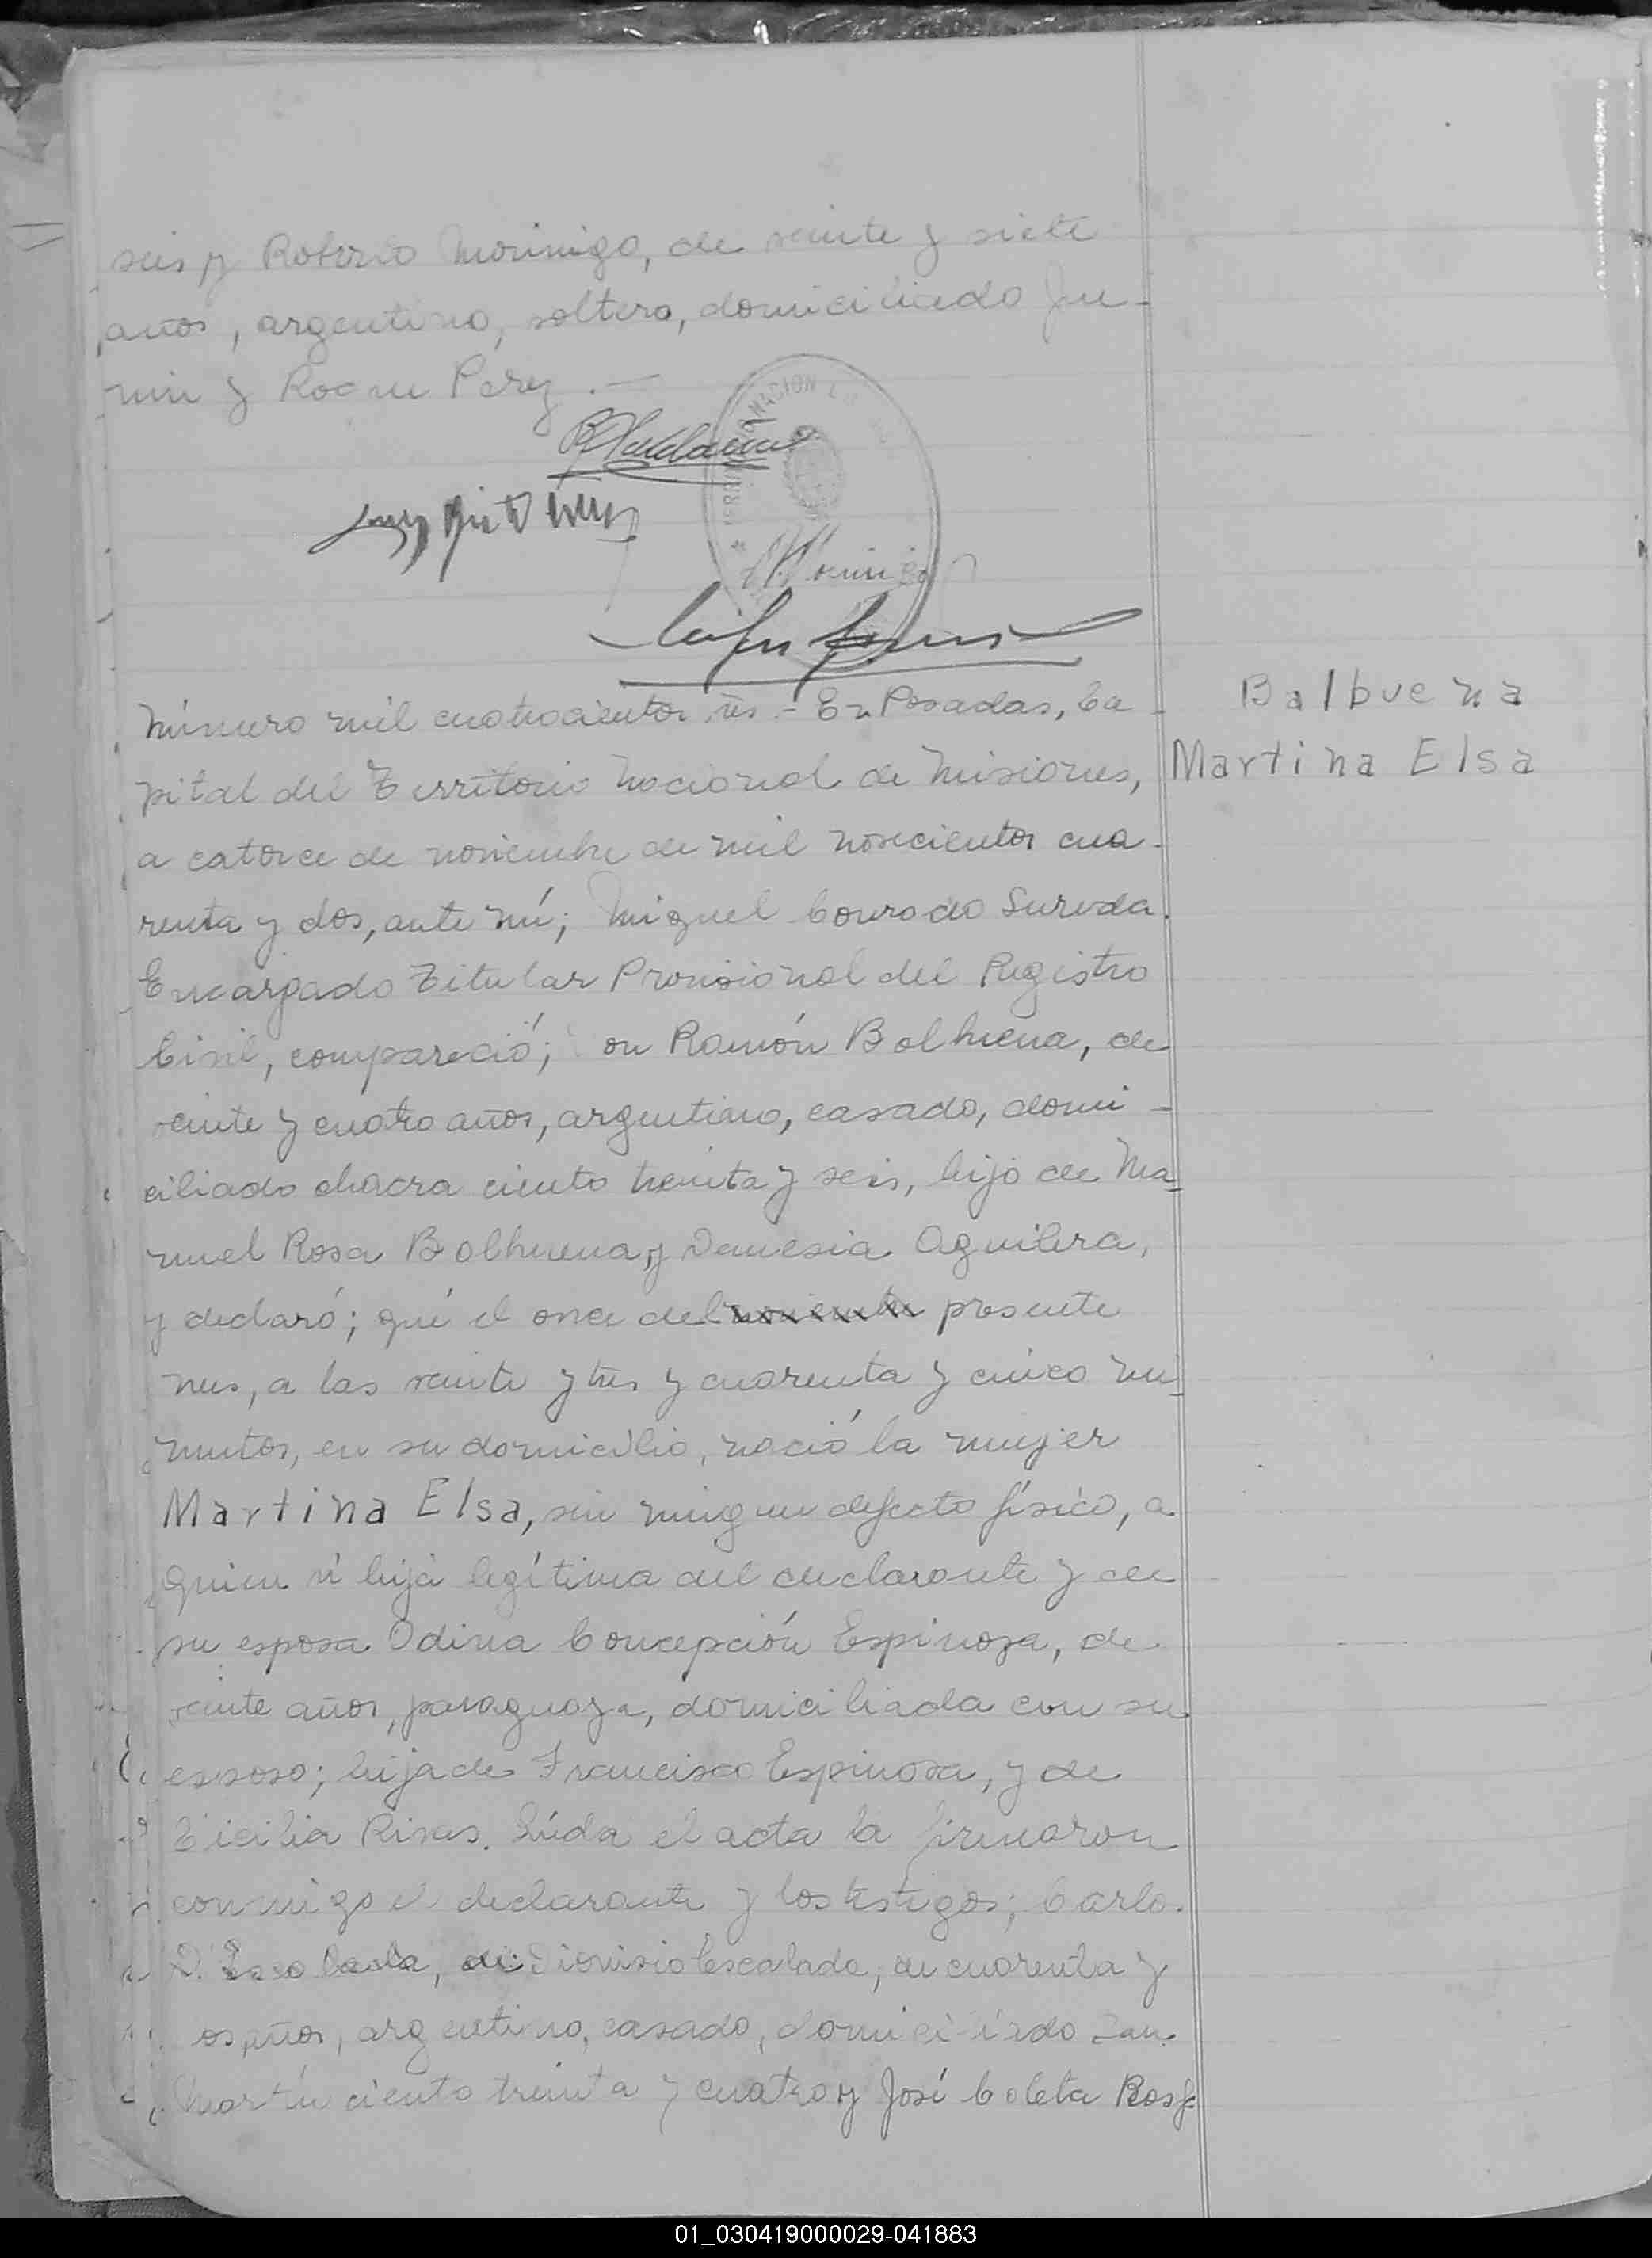 seis y Roberto Morinigo, de veinte y siete
años, argentino, soltero, domiciliado Ju-
nin y Roque Perez.—
Número mil cuatrocientos tres.- En Posadas, Ca-
pital del Territorio Nacional de Misiones,
a catorce de noviembre de mil novecientos cua-
renta y dos, ante mí; Miguel Conrado Sureda.
Encargado Titular Provisional del Registro
Civil, compareció; on Ramón Balbuena, de
veinte y cuatro años, argentino, casado, domi-
ciliado chacra ciento treinta y seis, hijo de Ma-
nuel Rosa Balbuena, y Damesia Aguilera,
y declaró; qué el once del presente
mes, a las veinte y tres y cuarenta y cinco mi-
nutos, en su domicilio, nació la mujer
Martina Elsa, sin ningun defecto físico, a
quien ví hija legítima del declarante y de
su esposa Odina Concepción Espinosa, de
veinte años, paraguaya, domiciliada con su
esposo; hija de Francisco Espinosa, y de
Cicilia Rivas. Leída el acta la firmaron
conmigo el declarante y los testigos; Carlo.
D. Escalada, de Dionisio Escalada, de cuarenta y
os años, argentino, casado, domiciliado San
Martín ciento treinta y cuatro y José Coleta Rosf
Balbuena
Martina Elsa
01_030419000029-041883